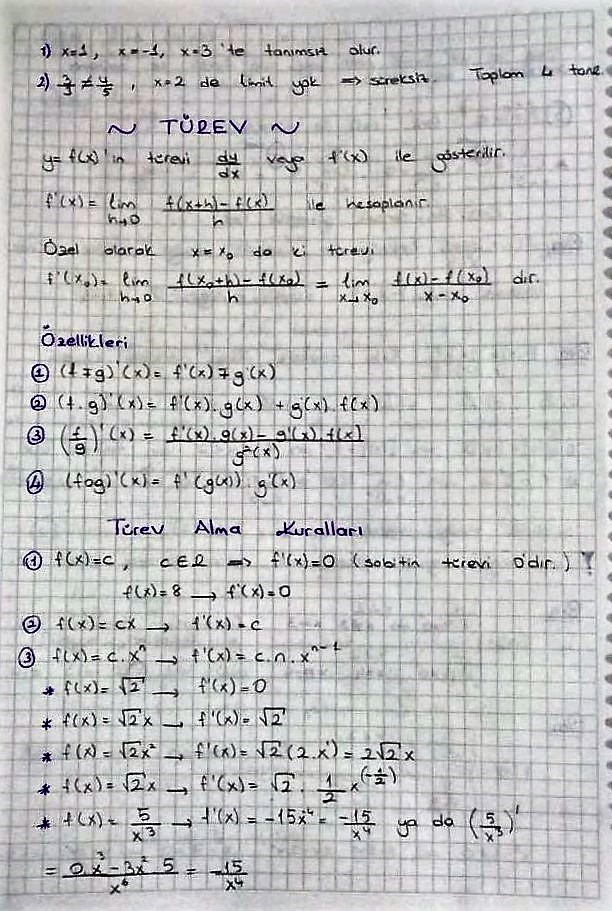 1) x=1, x=-1, x=3 'te tanımsız olur.
2) 3/3 ≠ 4/5, x=2 de limit yok => süreksiz. Toplam 4 tane
~ TÜREV ~
y= f(x)'in türevi dy/dx veya f'(x) ile gösterilir.
f'(x) = lim h→0 (f(x+h) - f(x))/h ile hesaplanır
Özel olarak x = x₀ da ki türevi
f'(x₀) = lim h→0 (f(x₀+h) - f(x₀))/h = lim x→x₀ (f(x) - f(x₀))/(x - x₀) dır.
Özellikleri
① (f∓g)'(x) = f'(x) ∓ g'(x)
② (f.g)'(x) = f'(x).g(x) + g'(x).f(x)
③ (f/g)'(x) = (f'(x).g(x) - g'(x).f(x))/g²(x)
④ (fog)'(x) = f'(g(x)).g'(x)
Türev Alma Kuralları
① f(x)=c, c∈R => f'(x)=0 (sabitin türevi 0'dır.)!
f(x)=8 → f'(x)=0
② f(x) = cx → f'(x) = c
③ f(x) = c.xⁿ → f'(x) = c.n.xⁿ⁻¹
* f(x) = √2 → f'(x) = 0
* f(x) = √2x → f'(x) = √2
* f(x) = √2x² → f'(x) = √2(2.x') = 2√2x
* f(x) = √2x → f'(x) = √2 . 1/2 x^(-1/2)
* f(x) = 5/x³ → f'(x) = -15x⁻⁴ = -15/x⁴ ya da (5/x³)'
= (0.x³ - 3x² 5)/x⁶ = -15/x⁴